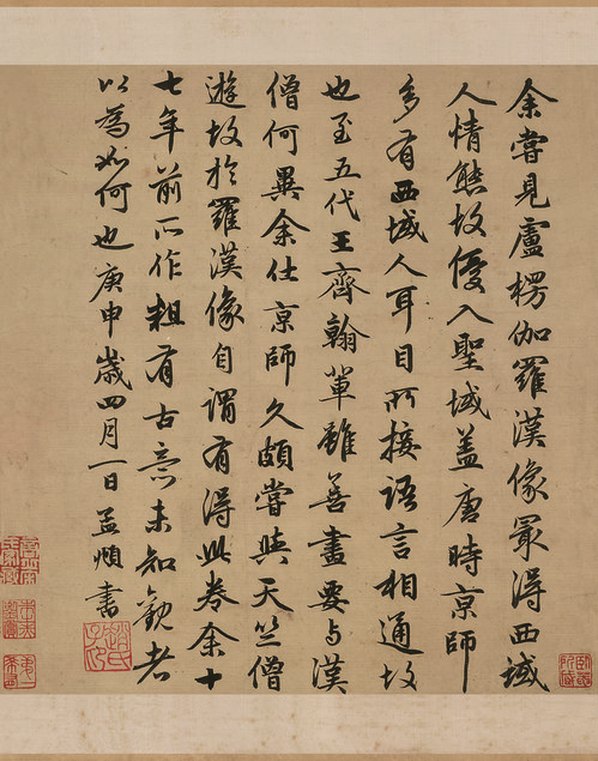 余嘗見盧楞伽羅漢像冣得西域
人情態故優入聖域蓋唐時京師
多有西域人耳目所接語言相通故
也至五代王齊翰輩雖善畫要与漢
僧何異余仕京師久頗嘗與天竺僧
遊故於羅漢像自謂有得此卷余十
七年前所作粗有古意未知觀者
以為如何也庚申歲四月一日孟頫書
趙氏子昂